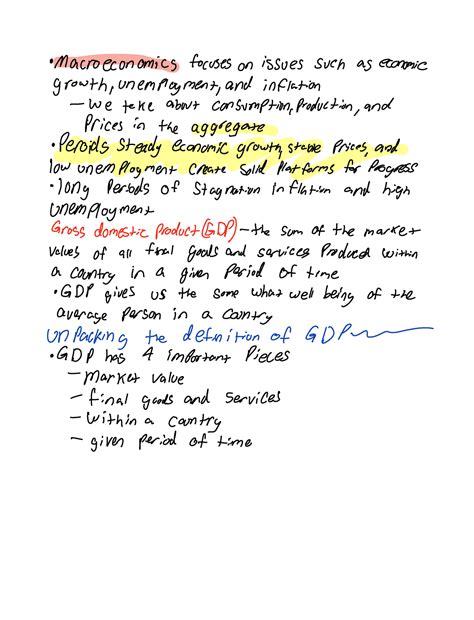 • Macroeconomics focuses on issues such as economic
growth, unemployment, and inflation
— We take about consumption, production, and
Prices in the aggregate
• Peroids steady economic growth, stable Prices, and
low unemployment create solid Platforms for Progress
• long Periods of Stagnation inflation and high
unemployment
Gross domestic Product (GDP) — the sum of the market
values of all final goods and services Produced within
a country in a given Period of time
• GDP gives us the some what well being of the
average Person in a country
unpacking the definition of GDP
• GDP has 4 important Pieces
— market value
— final goods and services
— Within a country
— given period of time